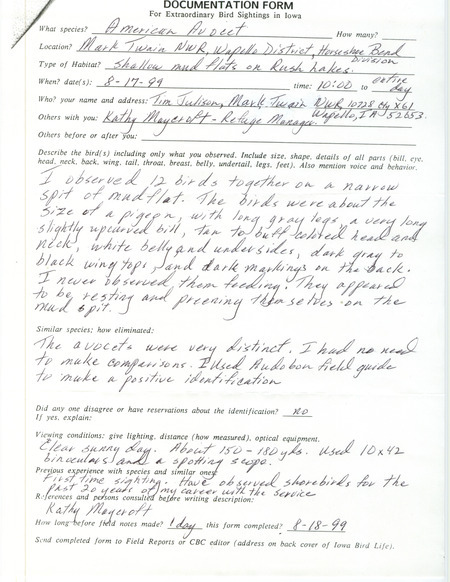 DOCUMENTATION FORM
For Extraordinary Bird Sightings in Iowa
What species? American Avocet How many?
Location? Mark Twain NWR, Wapello District, Horseshoe Bend Division
Type of Habitat? Shallow mud flats on Rush Lakes.
When? date(s): 8-17-99 time: 10:00 to entire day
Who? your name and address: Tim Julison, Mark Twain NWR 10728 Cty X61
Others with you: Kathy Maycroft - Refuge Manager Wapello, IA 52653
Others before or after you:
Describe the bird(s) including only what you observed. Include size, shape, details of all parts (bill, eye,
head, neck, back, wing, tail, throat, breast, belly, undertail, legs, feet). Also mention voice and behavior.
I observed 12 birds together on a narrow
spit of mudflat. The birds were about the
size of a pigeon, with long gray legs, a very long
slightly upcurved bill, tan to buff colored head and
neck, white belly and undersides, dark gray to
black wing tops, and dark markings on the back.
I never observed them feeding. They appeared
to be resting and preening themselves on the
mud spit.
Similar species; how eliminated:
The avocets were very distinct. I had no need
to make comparisons. I used Audobon field guide
to make a positive identification
Did any one disagree or have reservations about the identification? no
If yes, explain:
Viewing conditions: give lighting, distance (how measured), optical equipment.
Clear sunny day. About 150 - 180 yds. Used 10x42
binoculars and a spotting scope.
Previous experience with species and similar ones:
First time sighting. Have observed shorebirds for the
past 20 years of my career with the service
References and persons consulted before writing description:
Kathy Maycroft
How long before field notes made? 1 day this form completed? 8-18-99
Send completed form to Field Reports or CBC editor (address on back cover of Iowa Bird Life).